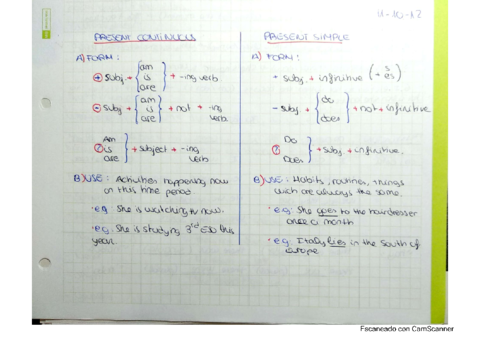 11-10-12
PRESENT CONTINUOUS
A) FORM:
+ subj + { am is are } + -ing verb
- subj + { am is are } + not + -ing verb
? Am is are } + subject + -ing verb
B) USE: Activities happening now
or this time period
· eg She is watching tv now.
· eg. She is studying 3rd ESO this
year.
PRESENT SIMPLE
A) FORM:
+ subj + infinitive (+ s es)
- subj + { do does } + not + infinitive
? Do Does } + subj + infinitive.
B) USE: Habits, routines, things
wich are always the same.
· eg: She goes to the hairdresser
once a month
· eg. Italy lies in the South of
Europe
Escaneado con CamScanner